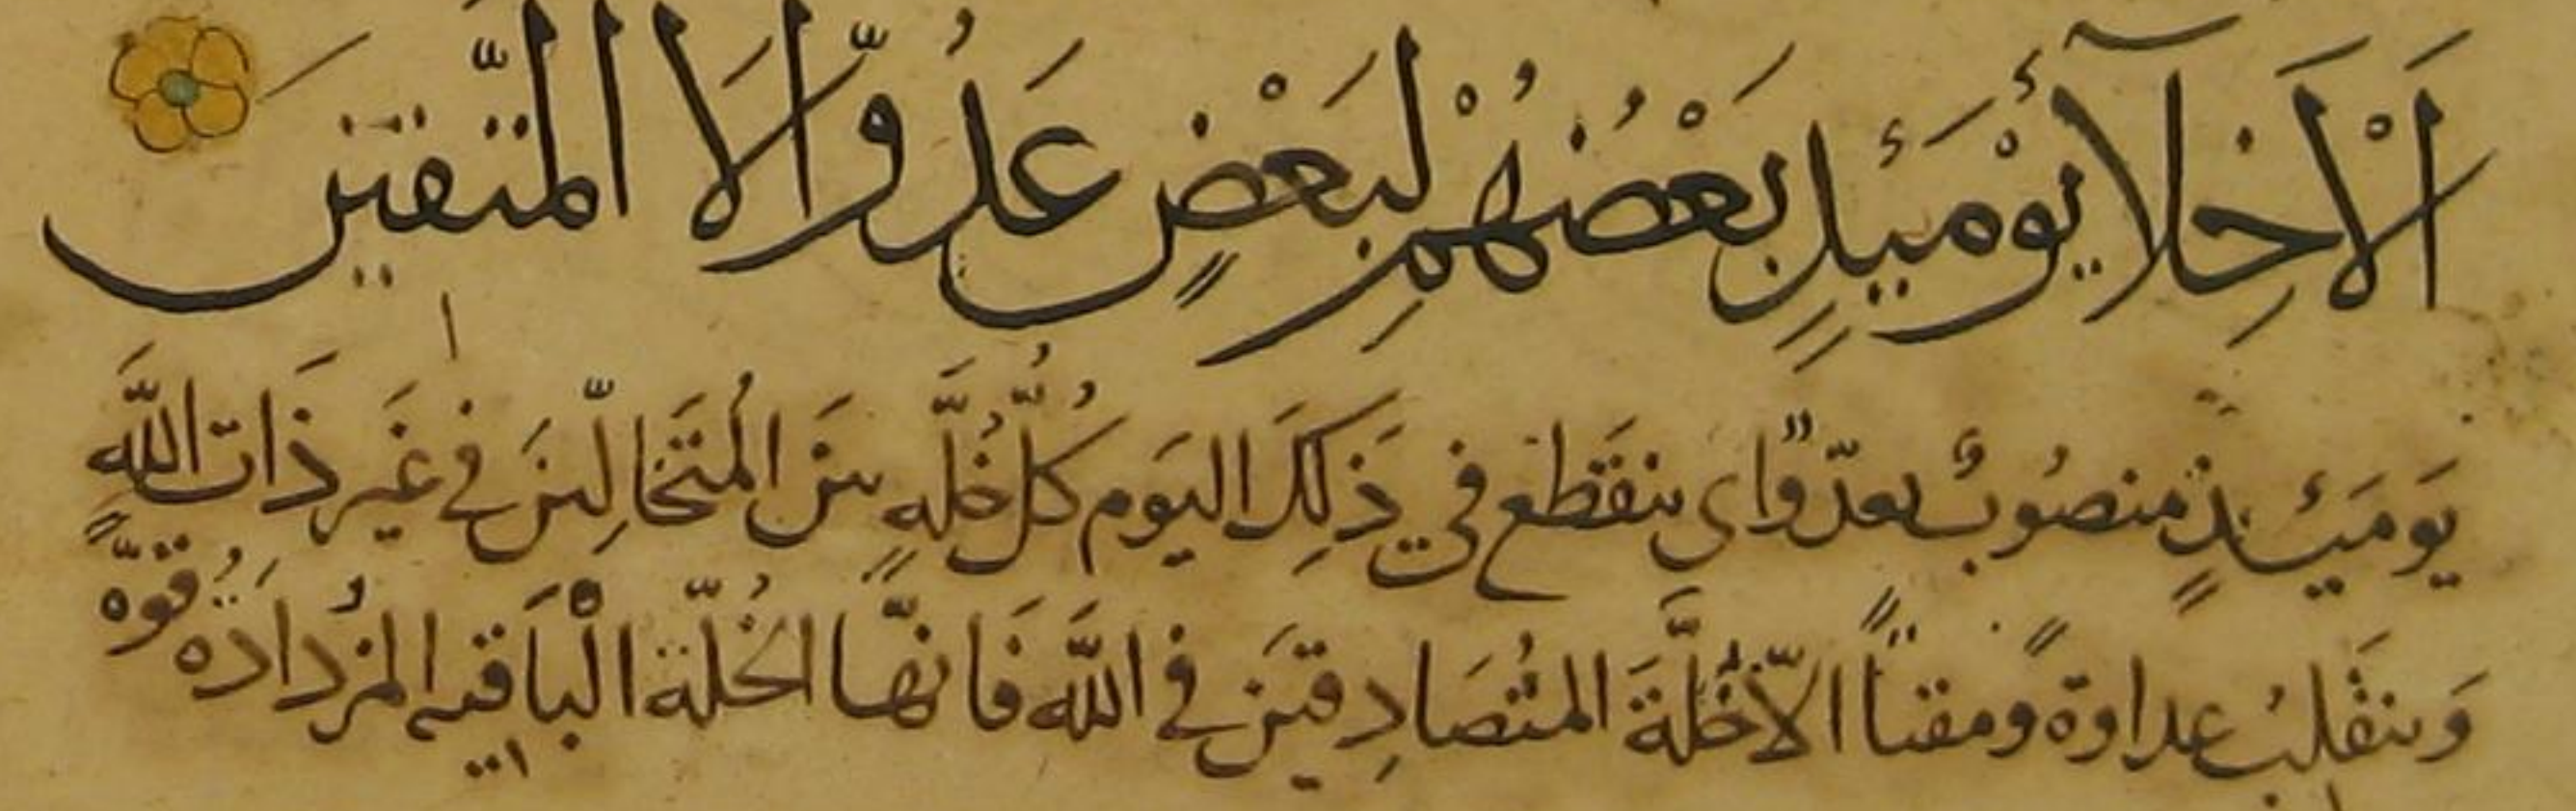 اَلْاَخِلَّآءُ يَوْمَئِذٍ بَعْضُهُمْ لِبَعْضٍ عَدُوٌّ اِلَّا الْمُتَّقِيْنَ
يَومَئِذٍ منصُوبٌ بعدوٌّ اى ينقَطع في ذَلِكَ اليَوم كُلُّ خُلَّةٍ بينَ المُتَخَالِّينَ في غَيرِ ذَاتِ اللَّهِ
وَينقَلبُ عداوةً ومقتاً الاّ خُلَّةَ المتُصَادِقينَ في اللَّه فَانّها الخُلّة الْبَاقية المزُدَادَة قوّة